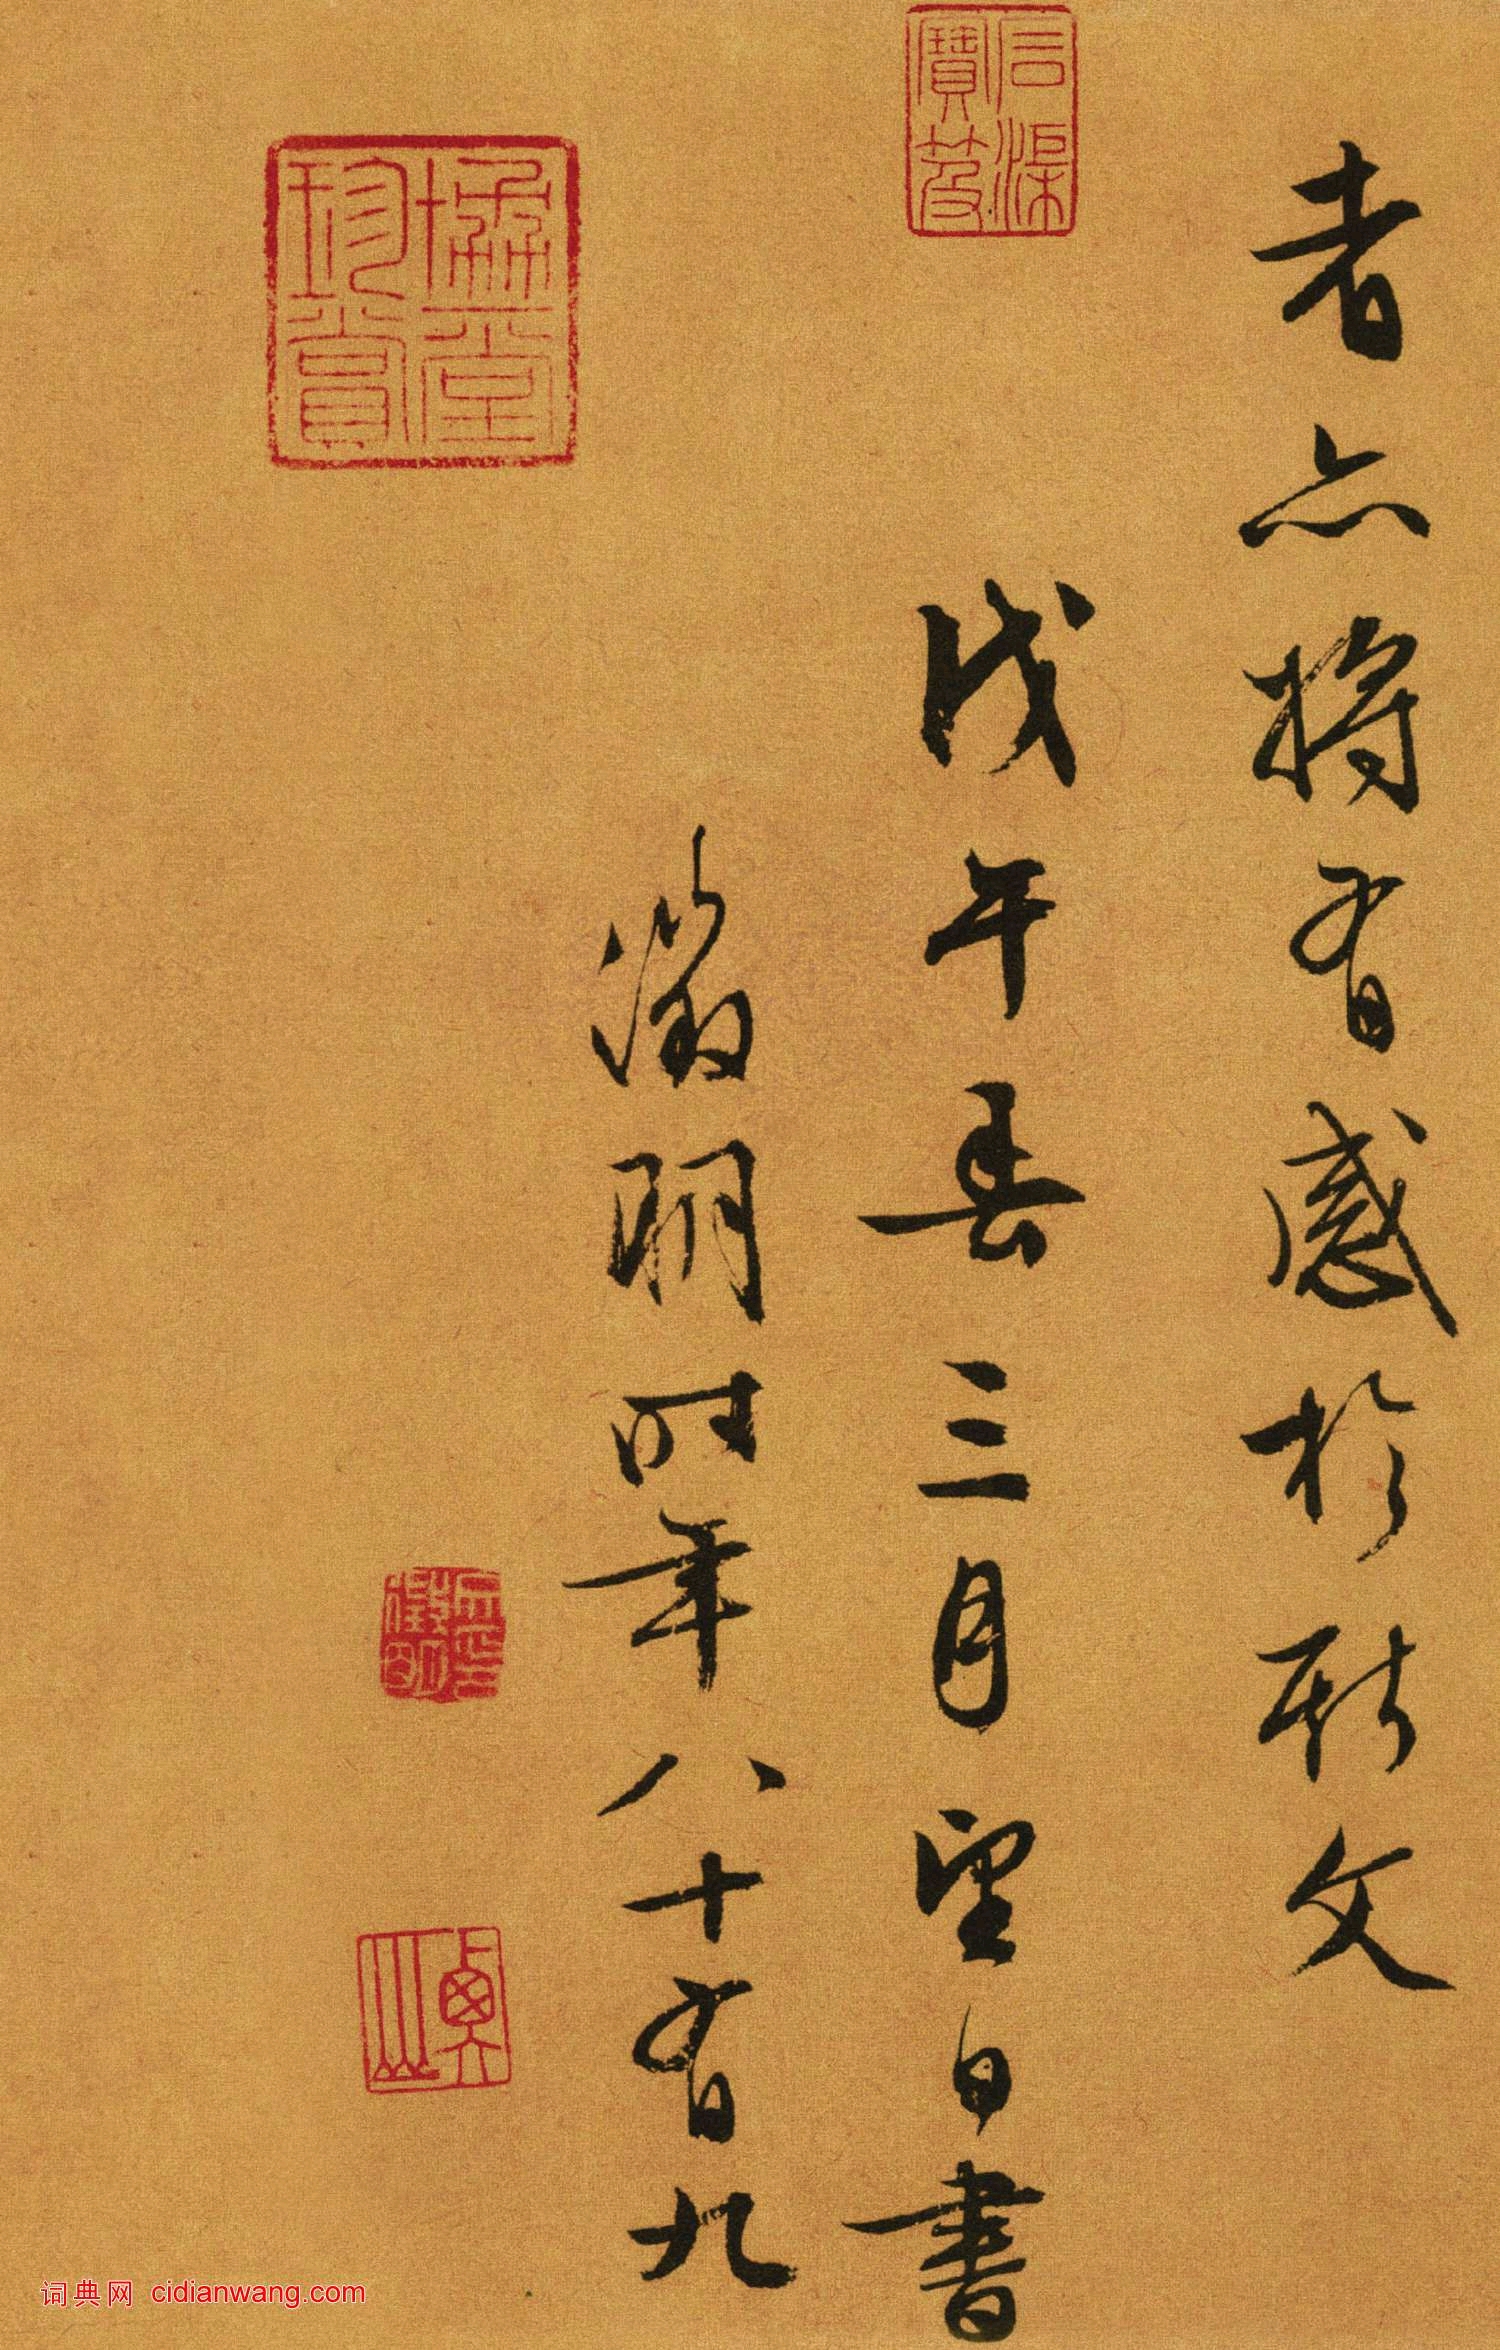 者亦將有感於斯文
戊午春三月望日書
徵明時年八十有九
協堂珍賞
徵明
詞典网 cidianwang.com